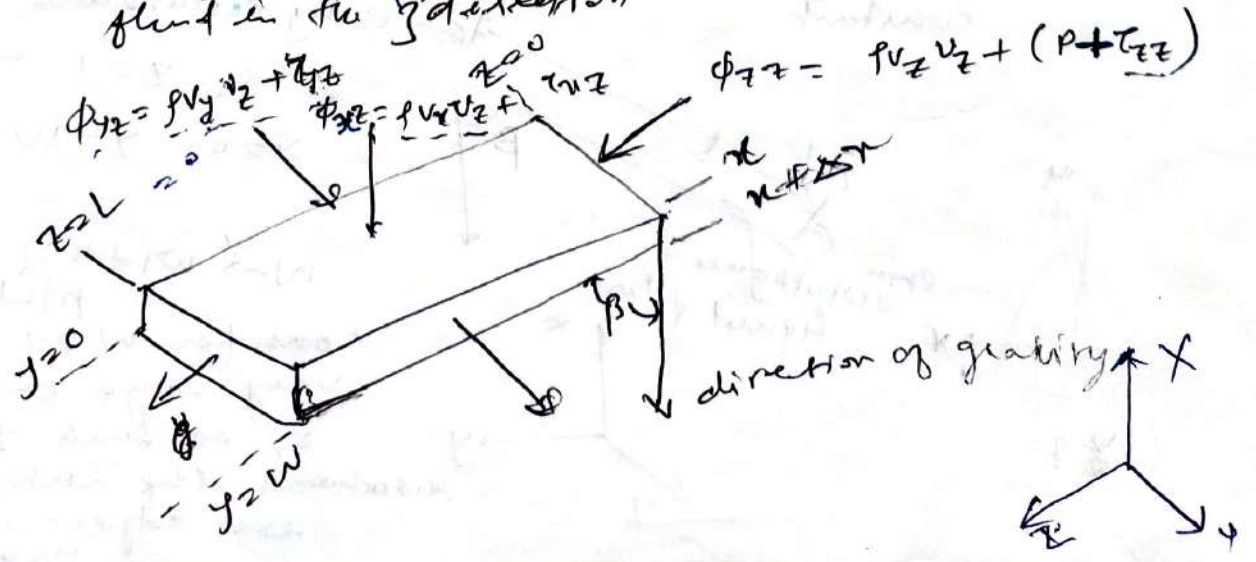 fluid in the z direction
ϕyz = ρvy vz + τyz
ϕxz = ρvx vz + τxz
z=0
ϕzz = ρvz vz + (P+τzz)
= 0
x
x+Δx
z=L
y=0
β
direction of gravity
X
y=W
z
y